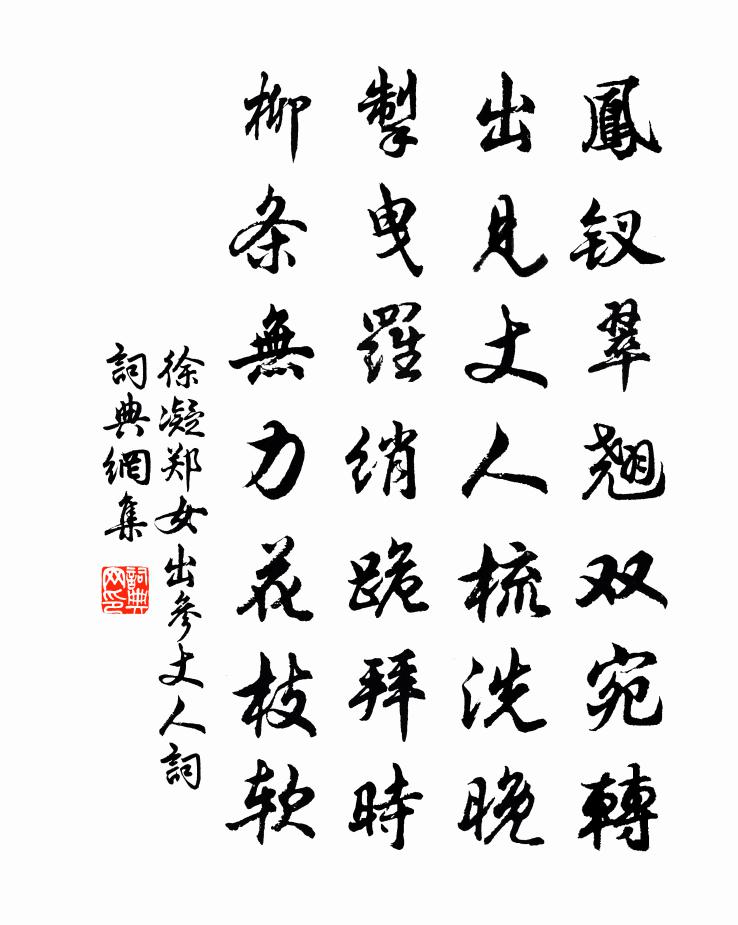 鳳钗翠翘双宛轉
出见丈人梳洗晚
掣曳羅绡跪拜時
柳条無力花枝软
徐凝郑女出參丈人詞
詞典網集
詞典网印